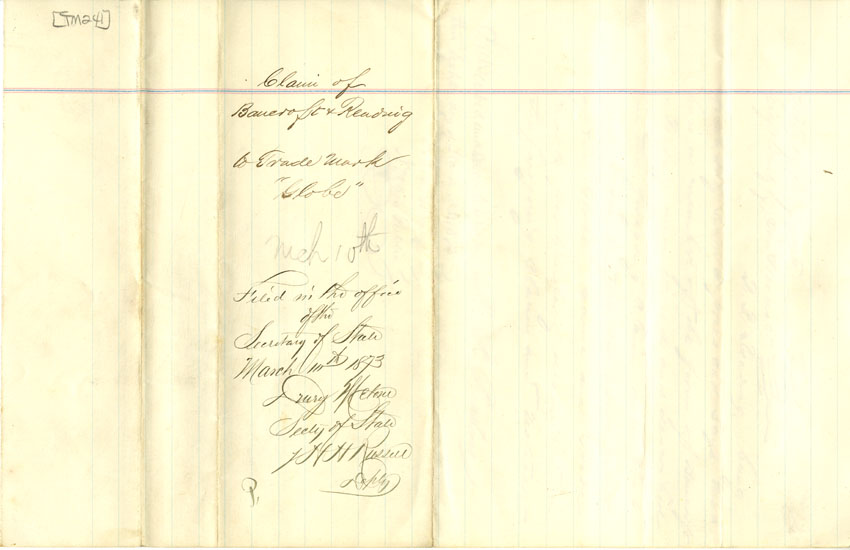 [TM241]
Claim of
Bancroft & Reading
to Trade Mark
"Globe"
Mch 10th
Filed in the office
of the
Secretary of State
March 10th 1873
Drury Melone
Secty of State
H H Russell
Depty
P.